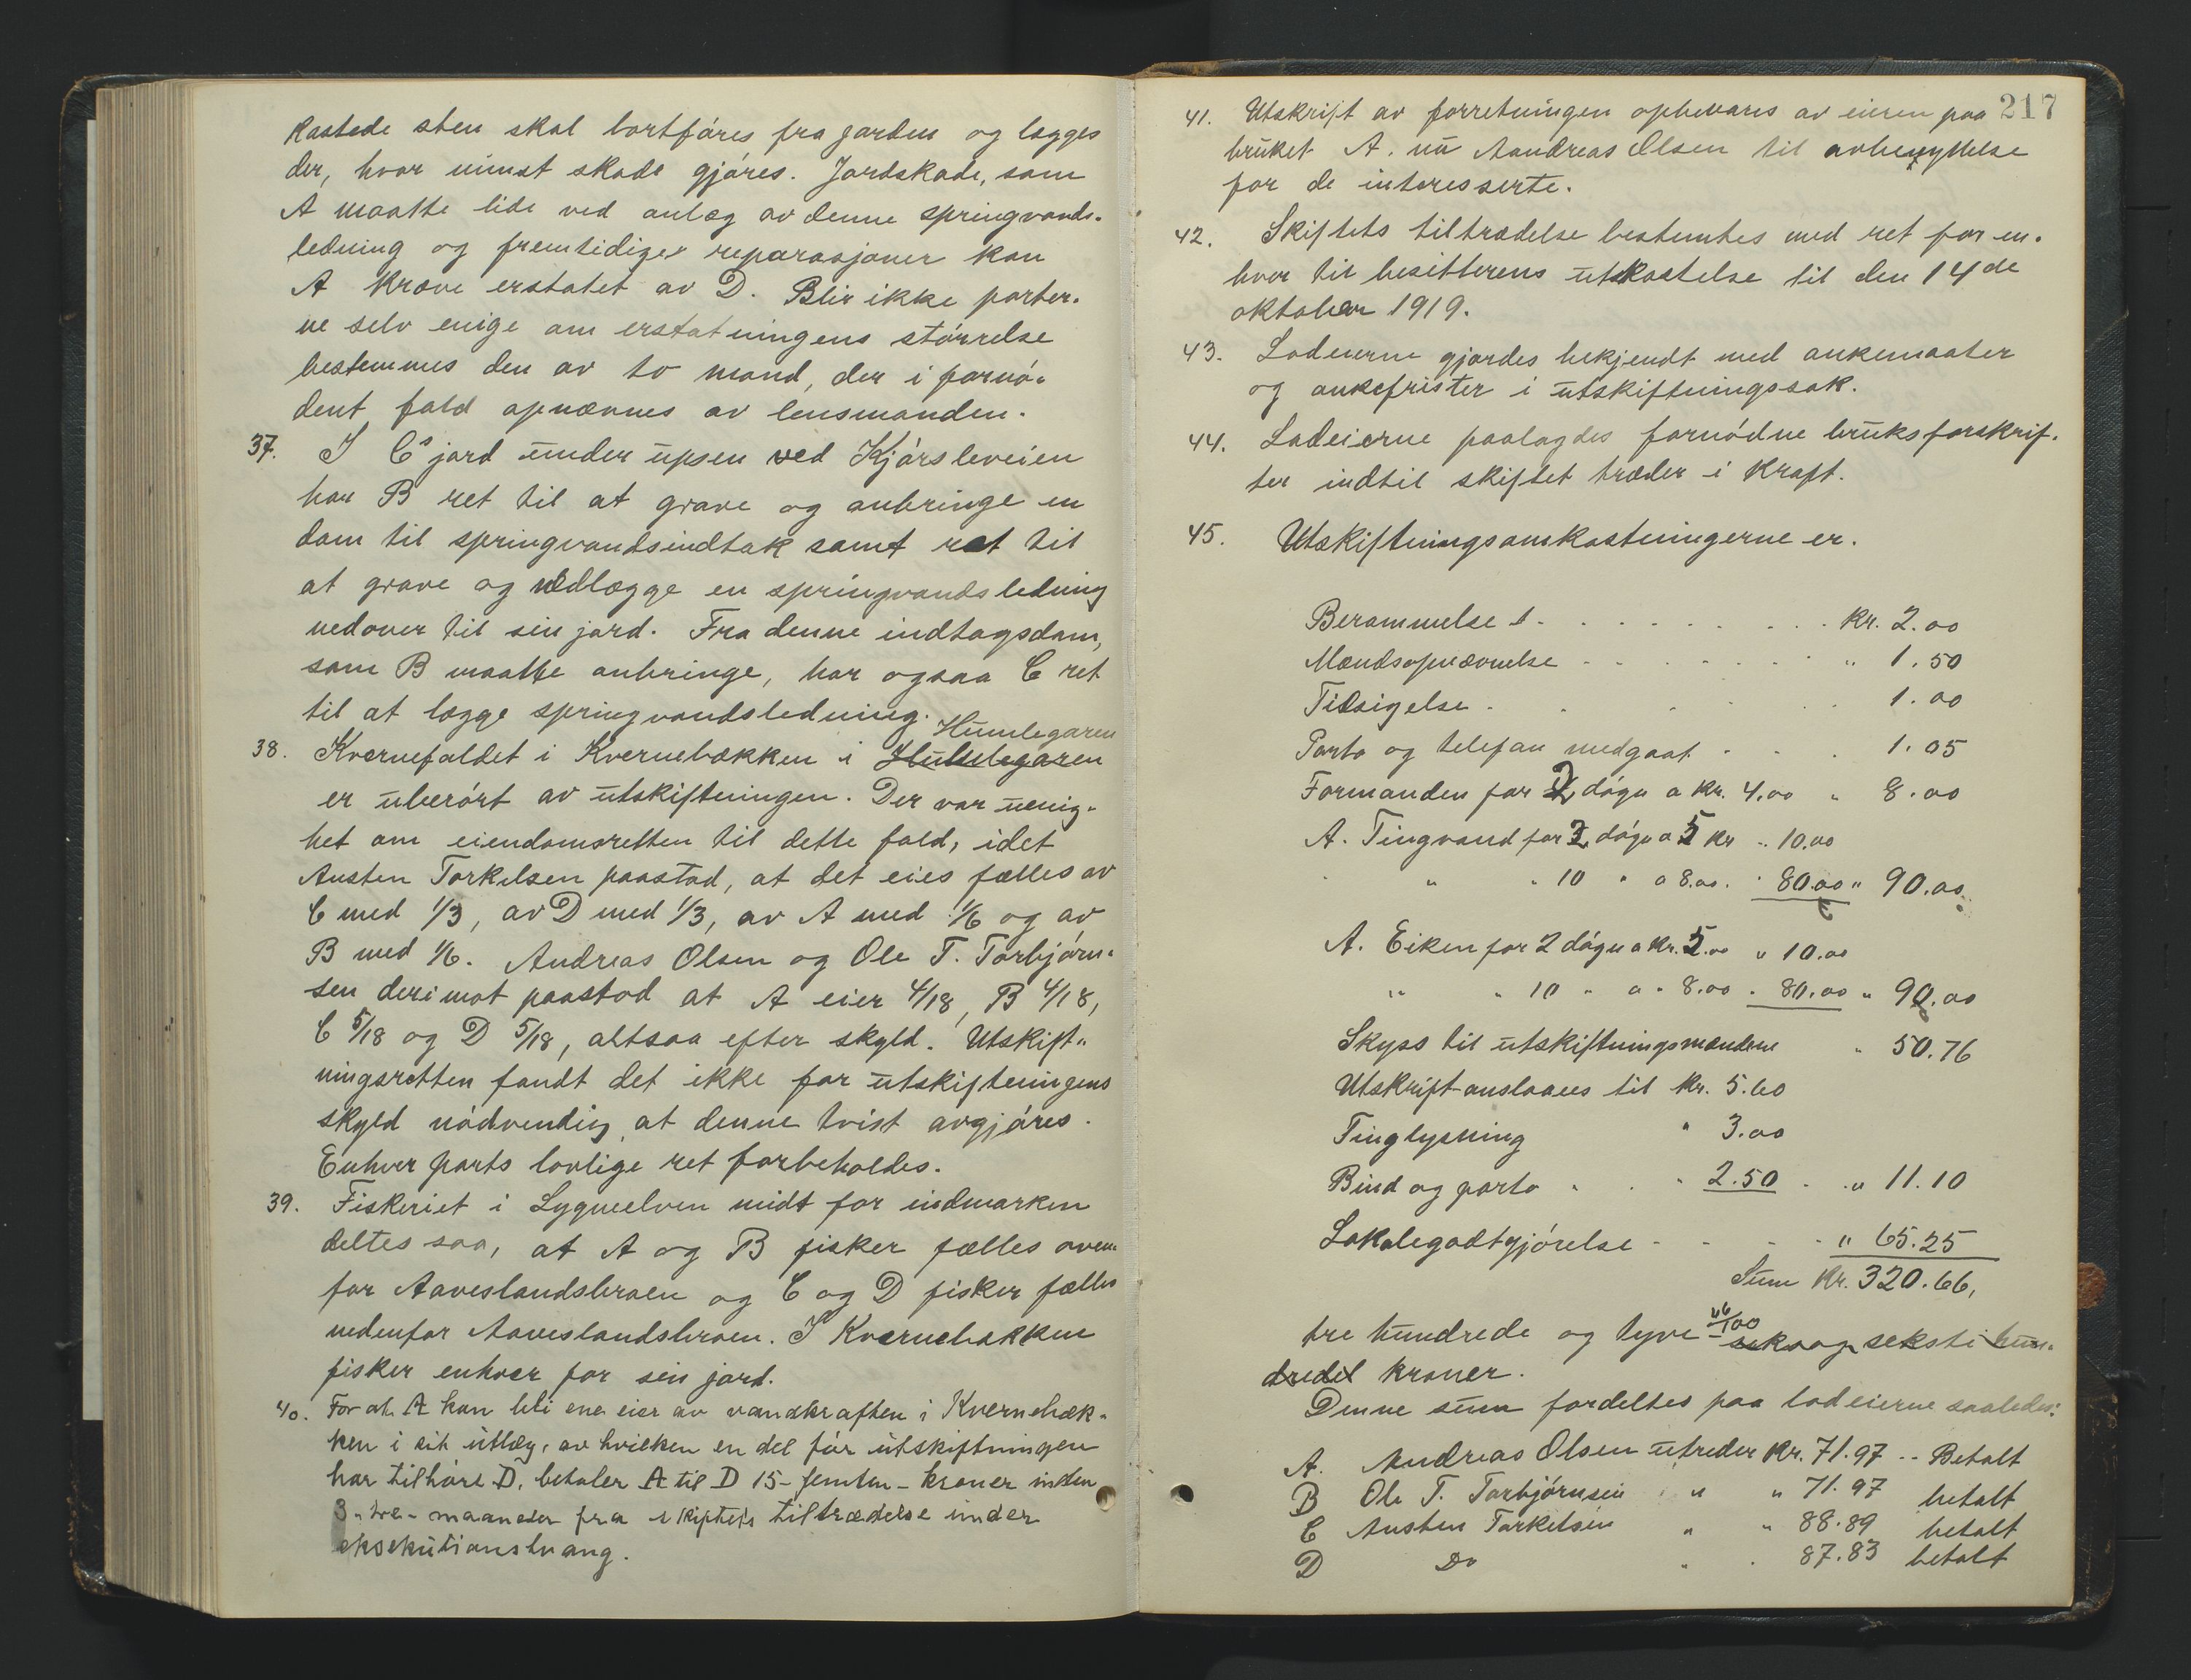 kastede sten skal bortføres fra jorden og lægges
der, hvor minst skade gjøres. Jordskade, som
A maatte lide ved anlæg av denne springvands-
ledning og fremtidiger reparasjoner kan
A kræve erstatet av D. Blir ikke parter-
ne selv enige om erstatningens størrelse
bestemmes den av to mænd, der i fornø-
dent fald opnævnes av lensmanden.
37. I C's jord under upsen ved Kjørsleveien
har B ret til at grave og anbringe en
dam til springvandsindtak samt ret til
at grave og nedlægge en springvandsledning
nedover til sin jord. Fra denne indtagsdam,
som B maatte anbringe, har ogsaa C ret
til at lægge springvandsledning.
Humlegaren
38. Kvernefaldet i Kvernebækken i Hulelegaren
er uberørt av utskiftningen. Der var uenig-
het om eiendomsretten til dette fald, idet
Austen Torkelsen paastod, at det eies fælles av
C med 1/3, av D med 1/3, av A med 1/6 og av
B med 1/6. Andreas Olsen og Ole T. Torbjørn-
sen derimot paastod at A eier 4/18, B 4/18,
C 5/18 og D 5/18, altsaa efter skyld. Utskift-
ningsretten fandt det ikke for utskiftningens
skyld nødvendig at denne tvist avgjøres.
Enhver parts lovlige ret forbeholdes.
39. Fiskeriet i Lygneelven midt for indmarken
deltes saa, at A og B fisker fælles oven-
for Aaveslandsbroen og C og D fisker fælles
nedenfor Aaveslandsbroen. I Kvernebækken
fisker enhver for sin jord.
40. For at A kan bli ene eier av vandkraften i Kvernebæk-
ken i sit utlæg, av hvilken en del før utskiftningen
har tilhørt D, betaler A til D 15 - femten - kroner inden
3 - tre - maaneder fra skiftets tiltrædelse under
eksekutionstvang.
217
41. Utskrift av forretningen opbevares av eieren paa
bruket A. nu Aandreas Olsen til avbenyttelse
for de interesserte.
42. Skiftets tiltrædelse bestemtes med ret for en-
hver til besitterens utkastelse til den 14de
oktober 1919.
43. Lodeierne gjordes bekjendt med ankemaater
og ankefrister i utskiftningssak.
44. Lodeierne paalagdes fornødne bruksforskrif-
ter indtil skiftet træder i kraft.
45. Utskiftningsomkostningerne er.
Berammelse 1. . . . . . kr. 2.00
Mændsopnævnelse . . . . " 1.50
Tilsigelse . . . . 1.00
Porto og telefon medgaat . . . 1.05
Formanden for 2 døgn a kr. 4.00 " 8.00
A. Tingvand for 2 døgn a 5 kr " 10.00
" " 10 " a 8.00. " 80.00 " 90.00
A. Eiken for 2 døgn a kr. 5.00 " 10.00
" " 10 " a " 8.00 " 80.00 " 90.00
Skyss til utskiftningsmændene " 50.76
Utskrift anslaaes til kr. 5.60
Tinglysning " 3.00
Bind og porto . . " 2.50 . " 11.10
Lokalegodtgjørelse - - - " 65.25
Sum kr. 320.66,
tre hundrede og tyve 66/100 seksog seksti hun-
dredel kroner.
Denne sum fordeltes paa lodeierne saaledes:
A. Andreas Olsen utreder kr. 71.97 -- Betalt
B Ole T. Torbjørnsen " " 71.97 betalt
C Austen Torkelsen " " 88.89 betalt
D Do " " 87.83 betalt